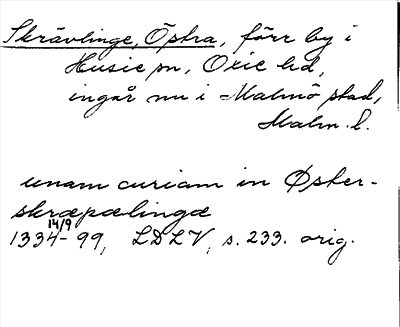 Skrävlinge, Östra, förr by i
Husie sn, Oxie hd,
ingår nu i Malmö stad,
Malm. l.
unam curiam in Øster-
skræpælingæ
1334 14/9 - 99, LDLV, s. 233. orig.